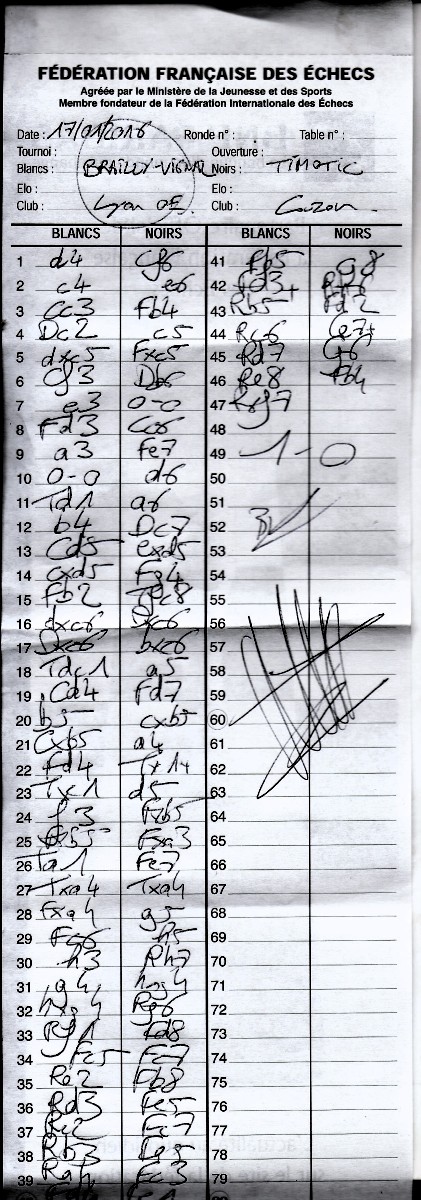 FÉDÉRATION FRANÇAISE DES ÉCHECS
Agréée par le Ministère de la Jeunesse et des Sports
Membre fondateur de la Fédération Internationale des Échecs
Date : 17/01/2016 Ronde n° : Table n° :
Tournoi : Ouverture :
Blancs : BRAILLY-VIGNAL Noirs : TIMOTIC
Elo : Elo :
Club : Lyon OE. Club : Cuzon
BLANCS NOIRS BLANCS NOIRS
1 d4 Cf6 41 Fb5 g8
2 c4 e6 42 Fd3+
3 Cc3 Fb4 43 Rb5 Fd2
4 Dc2 c5 44 Rc6 Ce7+
5 dxc5 Fxc5 45 Rd7 Cf6
6 Cf3 Db6 46 Re8 Fb4
7 e3 0-0 47 Rxf7
8 Fd3 Cc6 48
9 a3 Fe7 49 1-0
10 0-0 d6 50
11 Td1 a6 51
12 b4 Dc7 52
13 Cd5 exd5 53
14 cxd5 Fg4 54
15 Fb2 Tfc8 55
16 dxc6 Dxc6 56
17 Dxc6 bxc6 57
18 Tdc1 a5 58
19 Cd4 Fd7 59
20 b5 cxb5 60
21 Cxb5 a4 61
22 Fd4 Tx1+ 62
23 Tx1 d5 63
24 f3 Fxb5 64
25 Fxb5 Fxa3 65
26 Ta1 Fe7 66
27 Txa4 Txa4 67
28 Fxa4 g5 68
29 Fc6 h5 69
30 h3 Rh7 70
31 g4 hxg4 71
32 hxg4 Rg6 72
33 Rf1 Fd8 73
34 Fc5 Fc7 74
35 Re2 Fb8 75
36 Rd3 Fe5 76
37 Rc2 Fc7 77
38 Rb3 Fe5 78
39 Ra4 Fc3 79